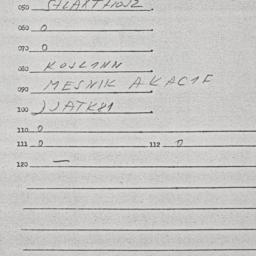 050
060 0
070 0
080 KOSLINN
090 MESNIK AKACIE
100 JJATK81
110 0
111 0 112 0
120 —